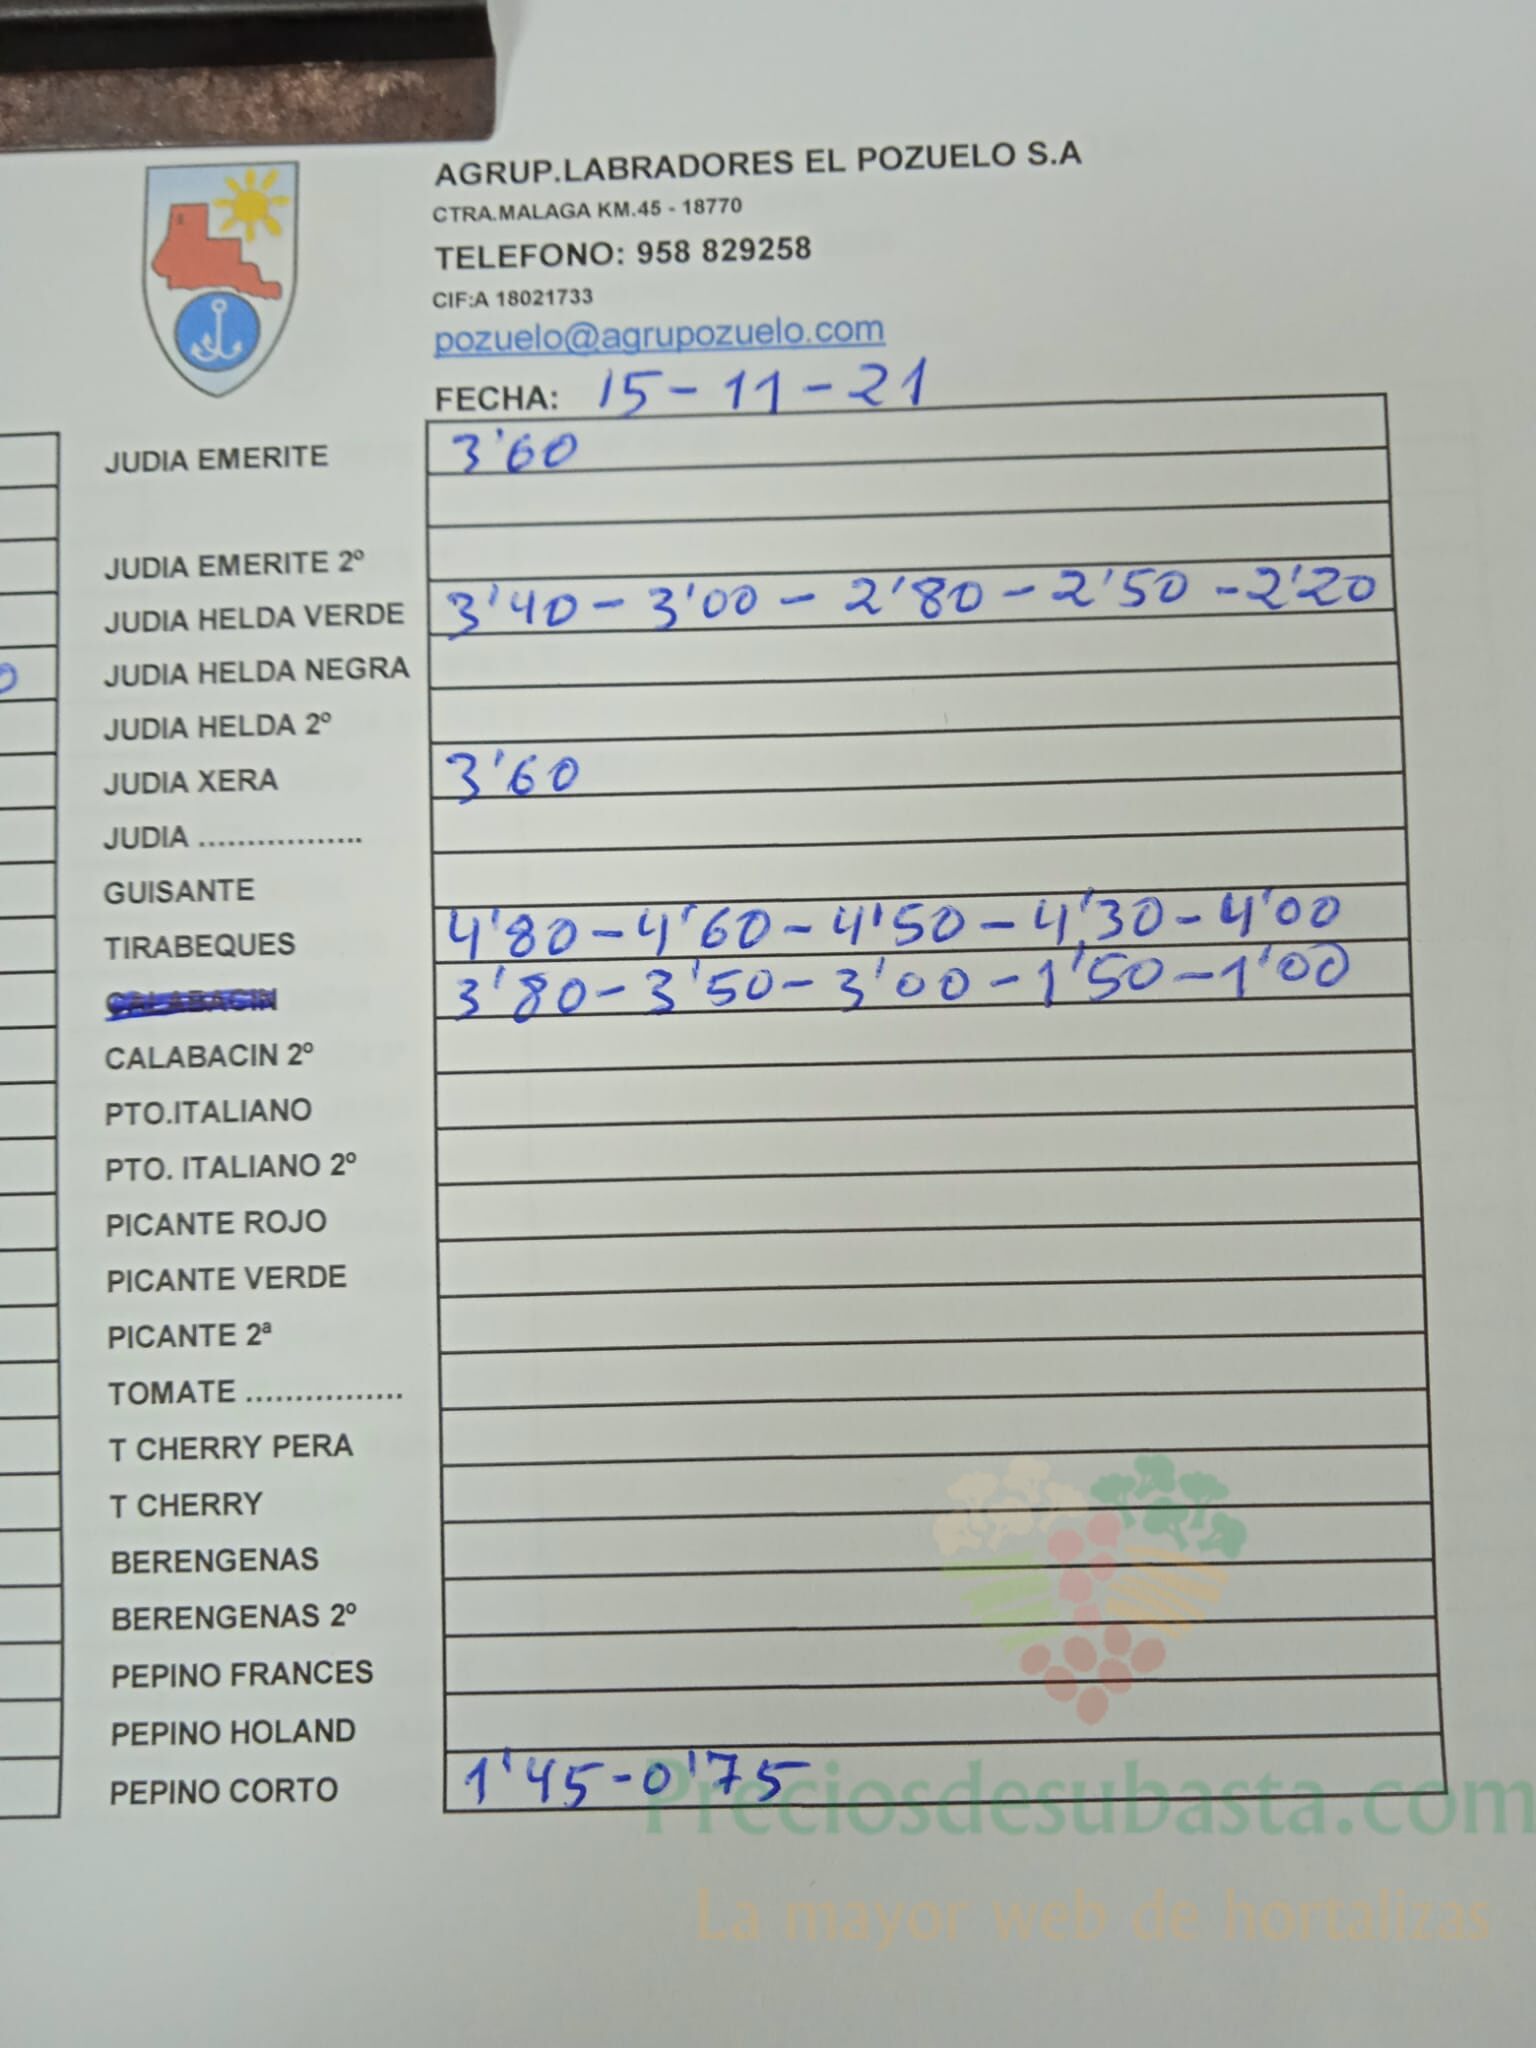 AGRUP.LABRADORES EL POZUELO S.A
CTRA.MALAGA KM.45 - 18770
TELEFONO: 958 829258
CIF:A 18021733
pozuelo@agrupozuelo.com
FECHA: 15-11-21
JUDIA EMERITE 3'60
JUDIA EMERITE 2º
JUDIA HELDA VERDE 3'40 - 3'00 - 2'80 - 2'50 - 2'20
JUDIA HELDA NEGRA
JUDIA HELDA 2º
JUDIA XERA 3'60
JUDIA .................
GUISANTE
TIRABEQUES 4'80 - 4'60 - 4'50 - 4'30 - 4'00
CALABACIN 3'80 - 3'50 - 3'00 - 1'50 - 1'00
CALABACIN 2º
PTO.ITALIANO
PTO. ITALIANO 2º
PICANTE ROJO
PICANTE VERDE
PICANTE 2ª
TOMATE ................
T CHERRY PERA
T CHERRY
BERENGENAS
BERENGENAS 2º
PEPINO FRANCES
PEPINO HOLAND
PEPINO CORTO 1'45 - 0'75
Preciosdesubasta.com
La mayor web de hortalizas